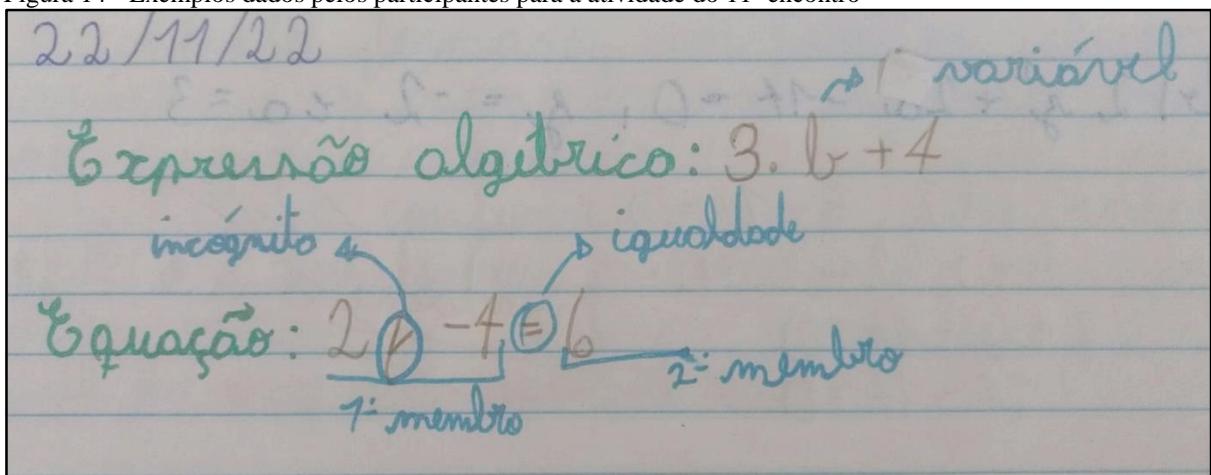 Figura 14 - Exemplos dados pelos participantes para a atividade do 11º encontro
22/11/22
variável
Expressão algébrica: 3. b + 4
incógnita igualdade
Equação: 2 -4 = 6
2º membro
1º membro